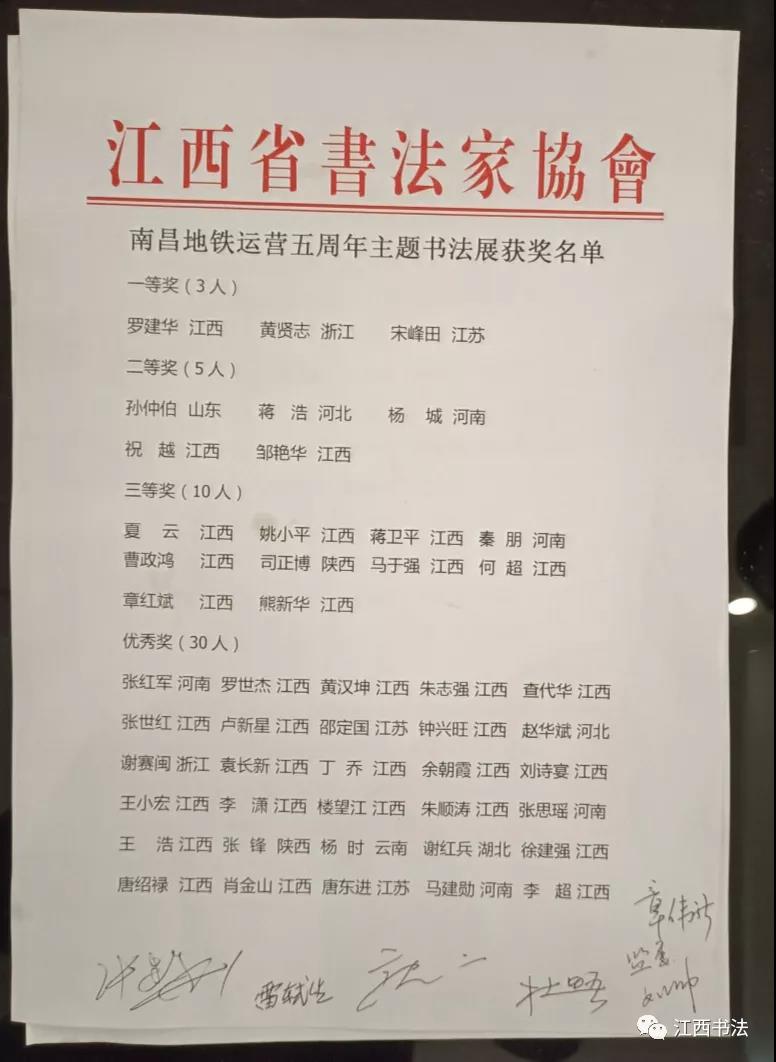 江西省書法家協會
南昌地铁运营五周年主题书法展获奖名单
一等奖(3人)
罗建华 江西 黄贤志 浙江 宋峰田 江苏
二等奖(5人)
孙仲伯 山东 蒋 浩 河北 杨 城 河南
祝 越 江西 邹艳华 江西
三等奖(10人)
夏 云 江西 姚小平 江西 蒋卫平 江西 秦 朋 河南
曹政鸿 江西 司正博 陕西 马于强 江西 何 超 江西
章红斌 江西 熊新华 江西
优秀奖(30人)
张红军 河南 罗世杰 江西 黄汉坤 江西 朱志强 江西 查代华 江西
张世红 江西 卢新星 江西 邵定国 江苏 钟兴旺 江西 赵华斌 河北
谢赛闽 浙江 袁长新 江西 丁 乔 江西 余朝霞 江西 刘诗宴 江西
王小宏 江西 李 潇 江西 楼望江 江西 朱顺涛 江西 张思瑶 河南
王 浩 江西 张 锋 陕西 杨 时 云南 谢红兵 湖北 徐建强 江西
唐绍禄 江西 肖金山 江西 唐东进 江苏 马建勋 河南 李 超 江西
监委
江西书法